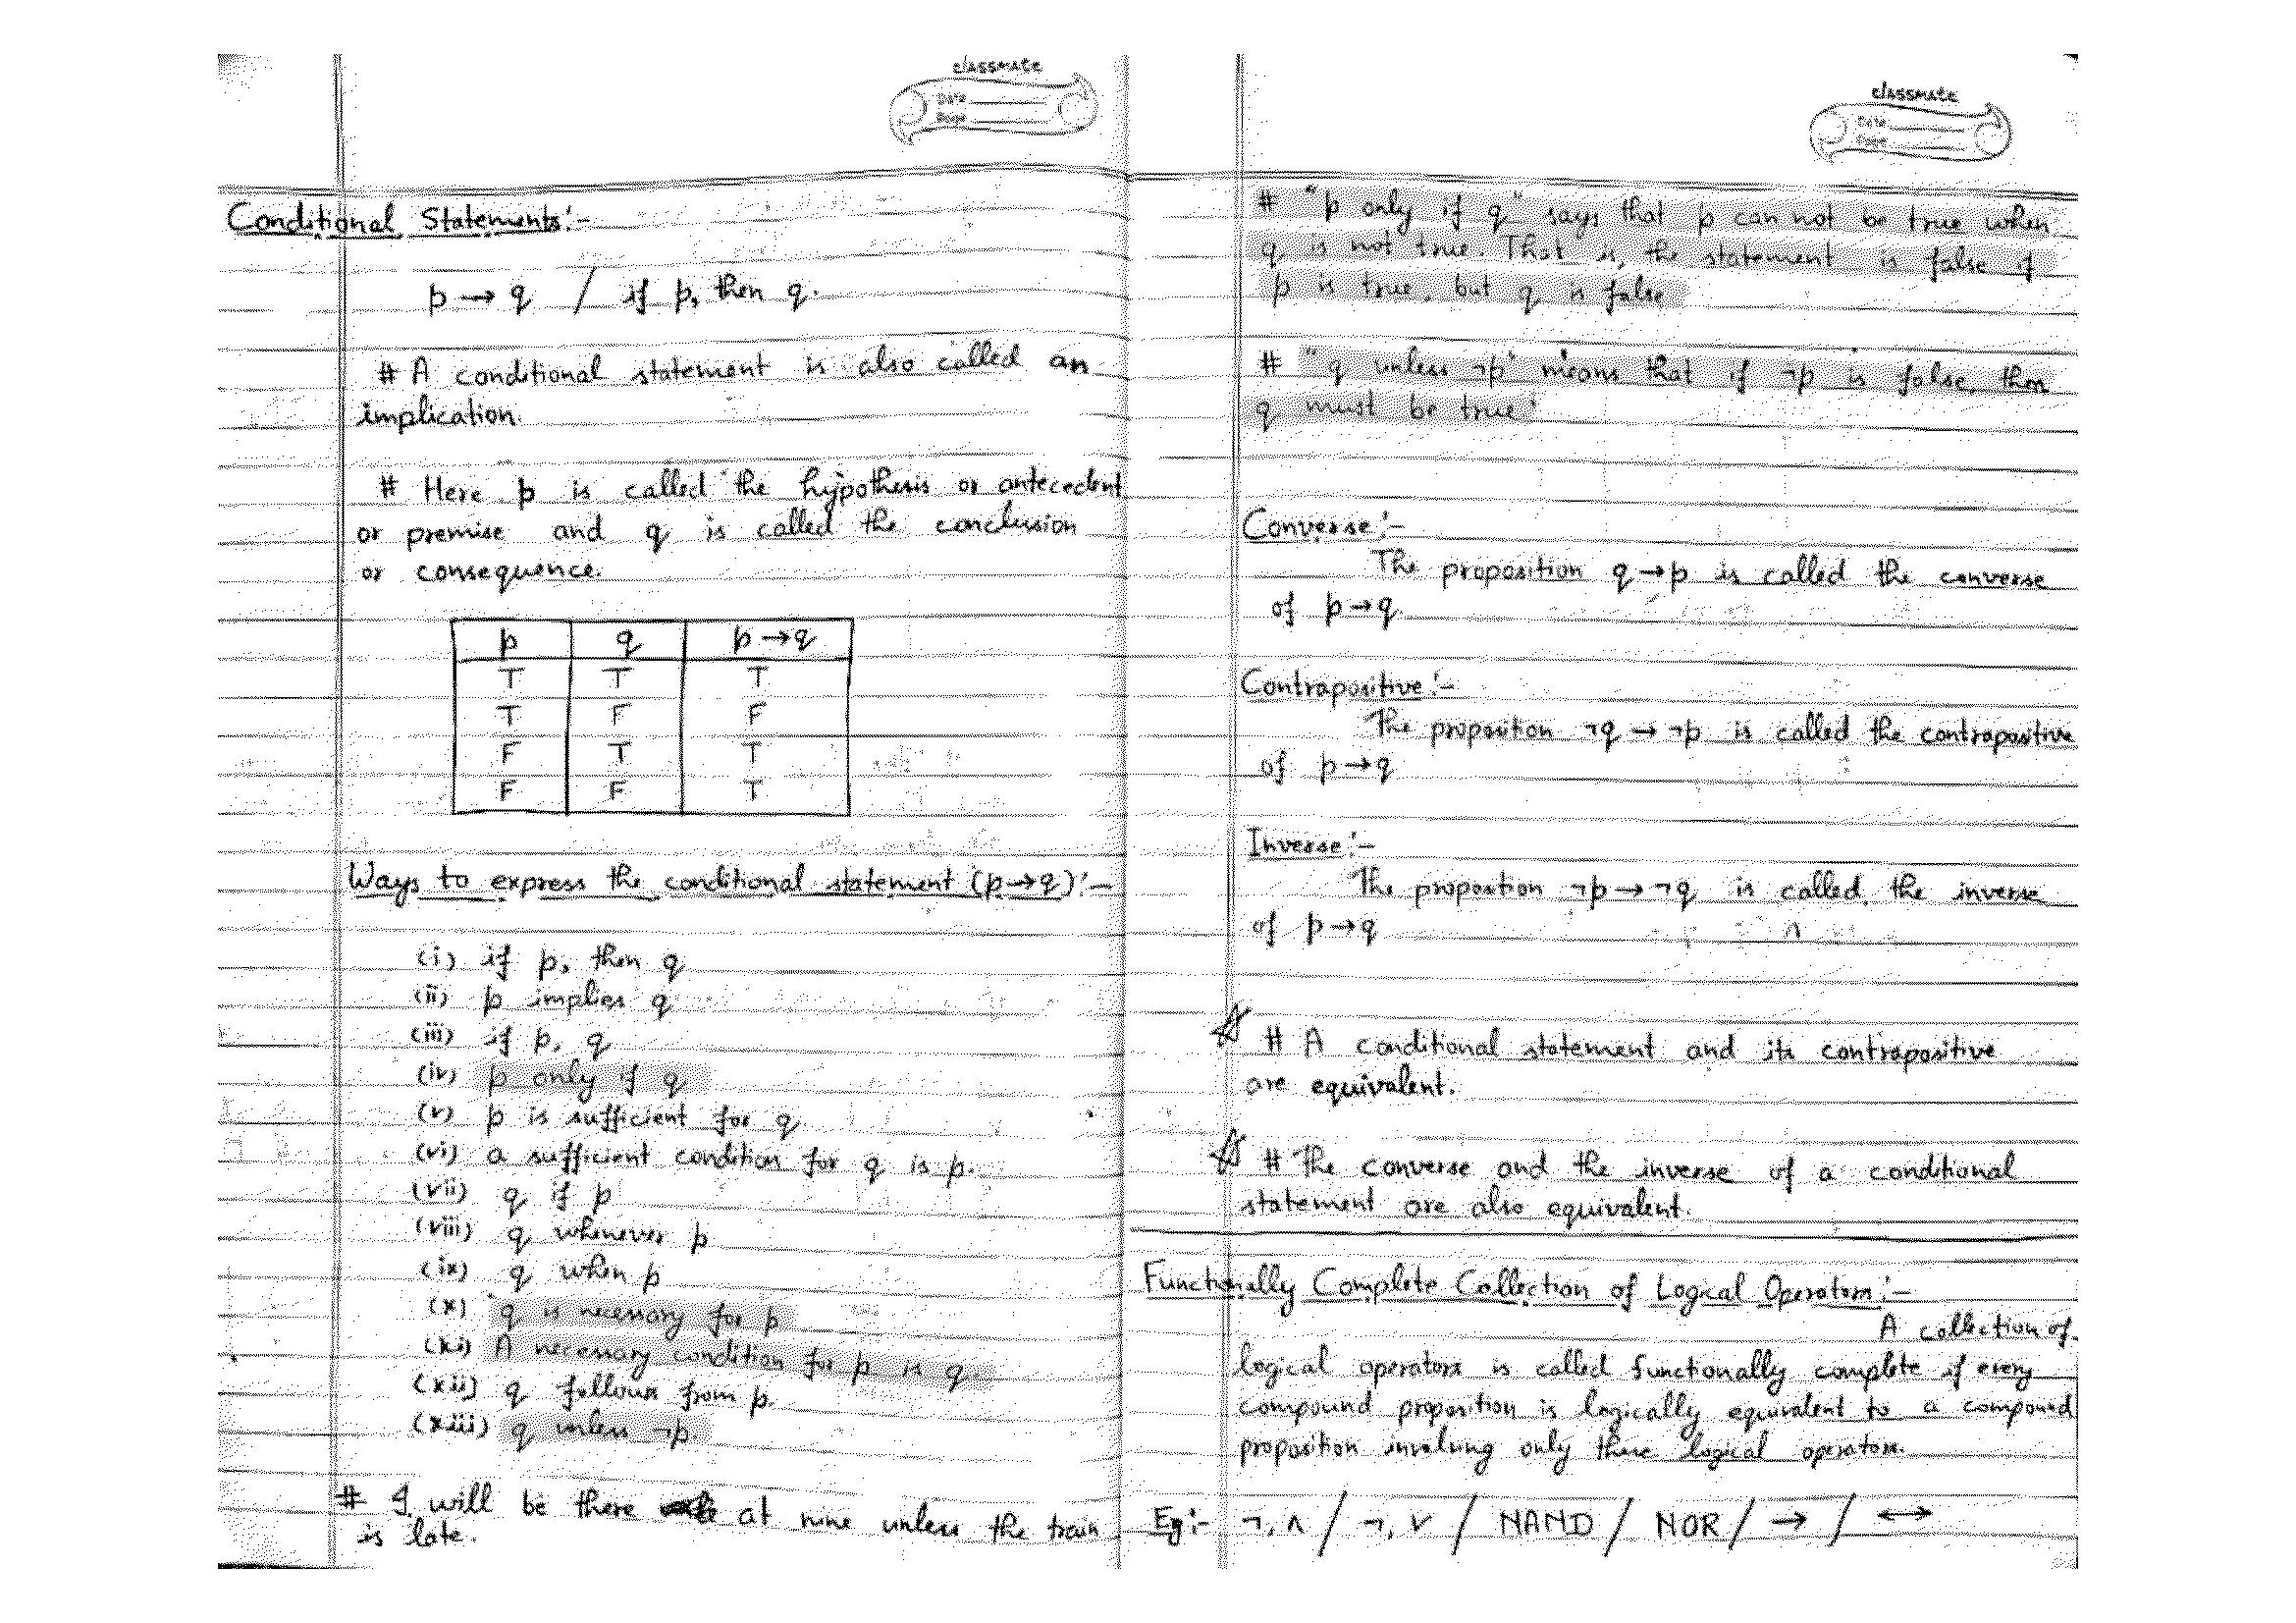 classmate
Date
Page
Conditional Statements:-
p → q / if p, then q.
# A conditional statement is also called an
implication.
# Here p is called the hypothesis or antecedent
or premise and q is called the conclusion
or consequence.
p q p → q
T T T
T F F
F T T
F F T
Ways to express the conditional statement (p→q):-
(i) if p, then q
(ii) p implies q
(iii) if p, q
(iv) p only if q
(v) p is sufficient for q
(vi) a sufficient condition for q is p.
(vii) q if p
(viii) q whenever p
(ix) q when p
(x) q is necessary for p
(xi) A necessary condition for p is q.
(xii) q follows from p.
(xiii) q unless ¬p.
# I will be there at nine unless the train
is late.
classmate
Date
Page
# "p only if q" says that p can not be true when
q is not true. That is, the statement is false if
p is true, but q is false
# "q unless ¬p" means that if ¬p is false then
q must be true.
Converse:-
The proposition q→p is called the converse
of p→q.
Contrapositive:-
The proposition ¬q → ¬p is called the contrapositive
of p→q
Inverse:-
The proposition ¬p → ¬q is called the inverse
of p→q
# A conditional statement and its contrapositive
are equivalent.
# The converse and the inverse of a conditional
statement are also equivalent.
Functionally Complete Collection of Logical Operators:-
A collection of
logical operators is called functionally complete if every
compound proposition is logically equivalent to a compound
proposition involving only these logical operators.
Eg:- ¬, ∧ / ¬, ∨ / NAND / NOR / → / ↔